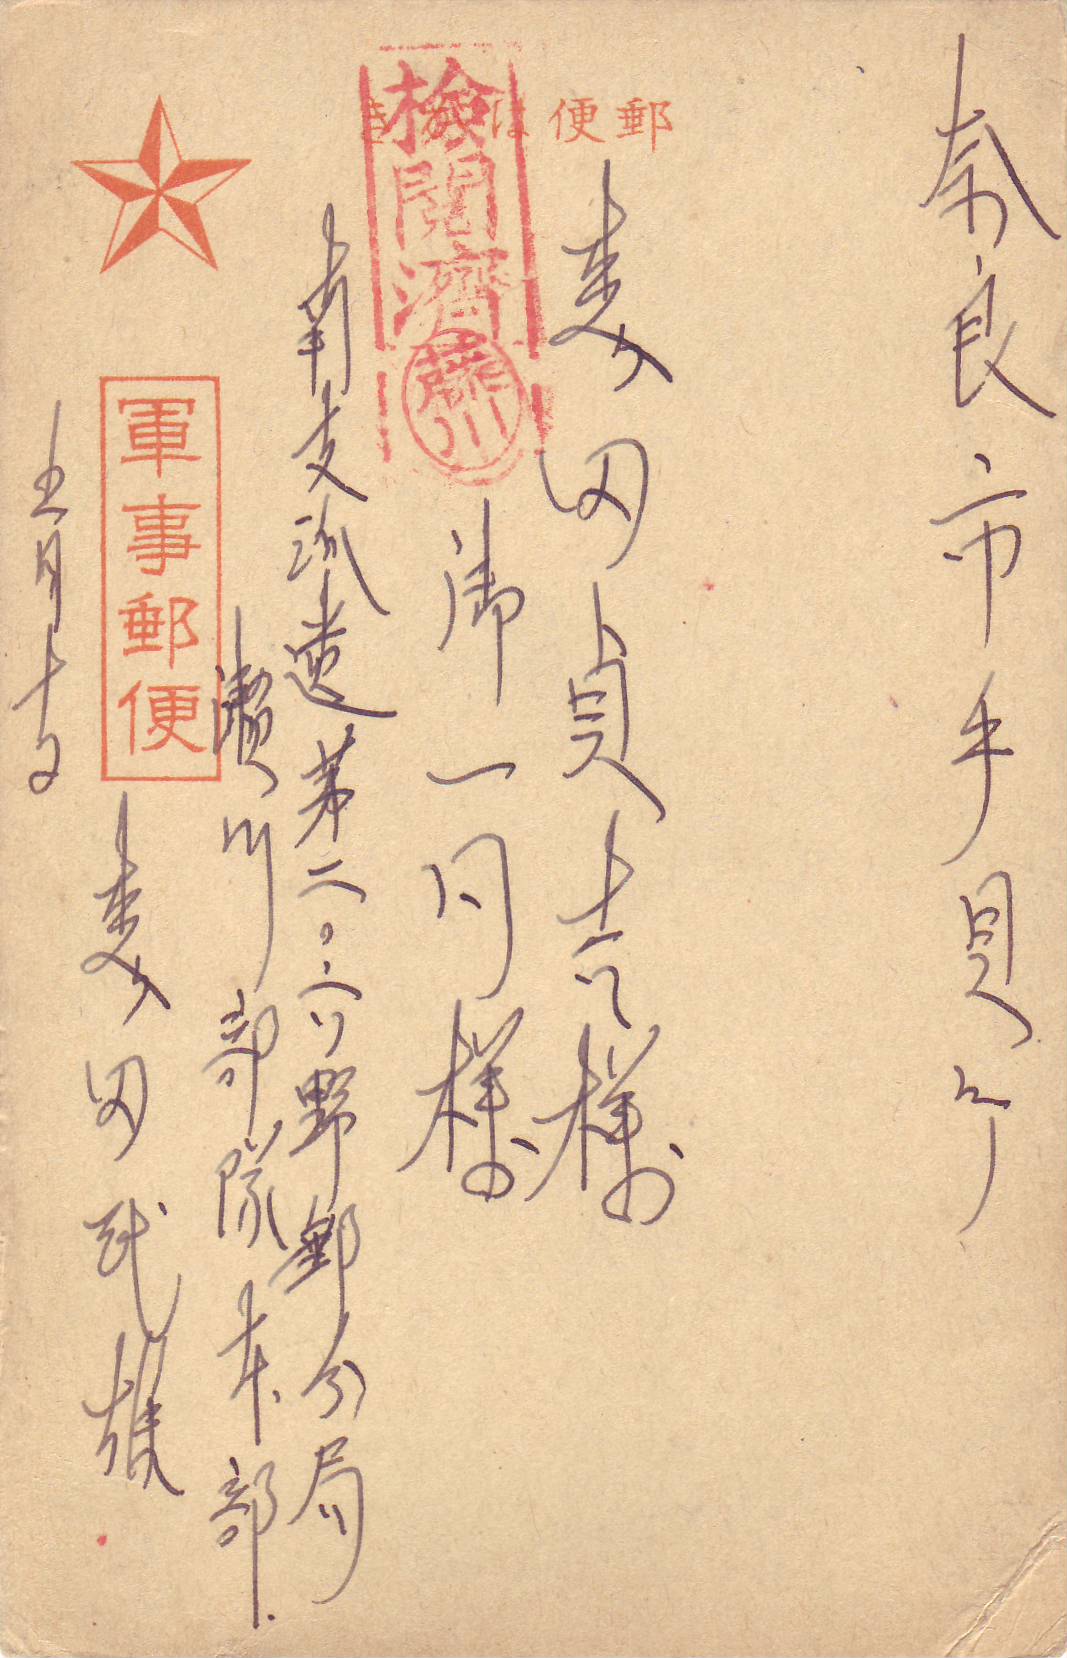 郵便はがき
検閲濟
藤川
軍事郵便
奈良市手貝町
麦田貞吉様
御一同様
南支派遣第二〇六野郵分局
濱川部隊本部
麦田武雄
五月十日